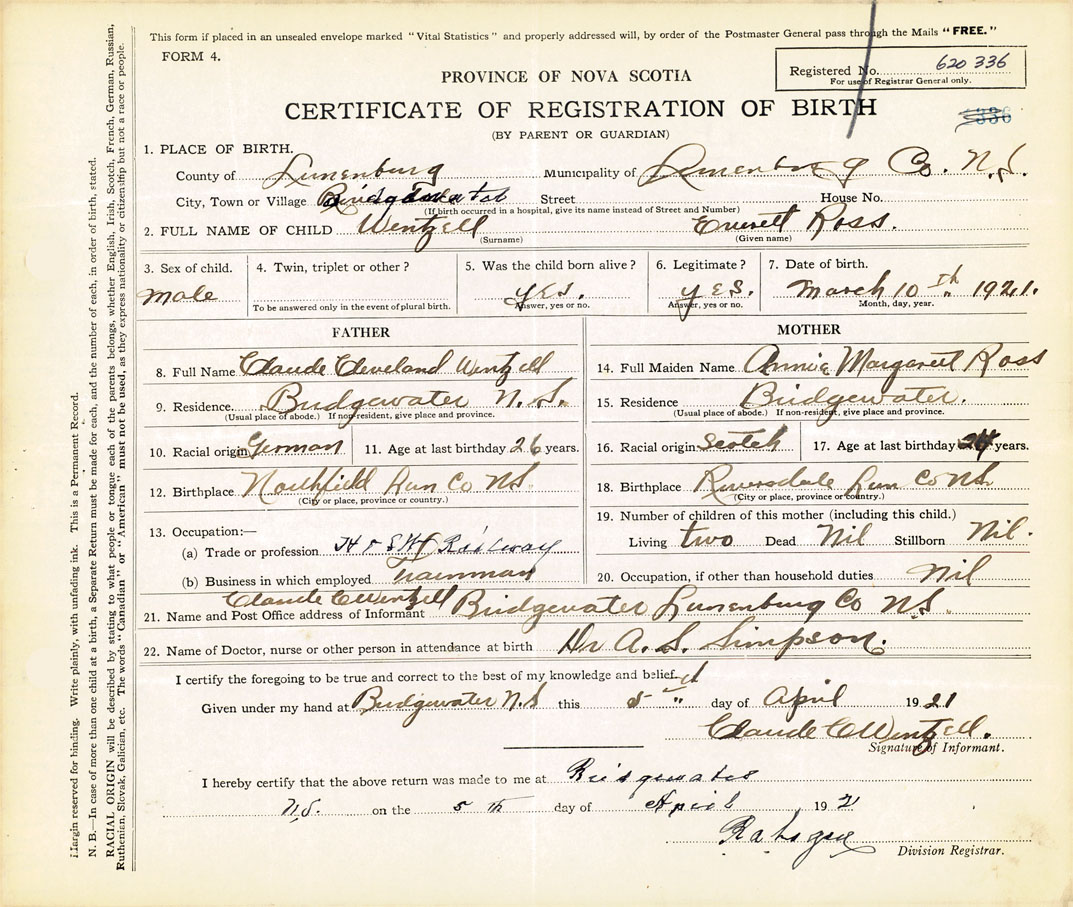 This form if placed in an unsealed envelope marked "Vital Statistics" and properly addressed will, by order of the Postmaster General pass through the Mails "FREE."
FORM 4.
Registered No. 620 336
For use of Registrar General only.
PROVINCE OF NOVA SCOTIA
CERTIFICATE OF REGISTRATION OF BIRTH
336
(BY PARENT OR GUARDIAN)
1. PLACE OF BIRTH.
County of Lunenburg Municipality of Lunenburg Co. N.S.
City, Town or Village Bridgewater Street House No.
(If birth occurred in a hospital, give its name instead of Street and Number)
2. FULL NAME OF CHILD Wentzell Everett Ross.
(Surname) (Given name)
3. Sex of child. 4. Twin, triplet or other? 5. Was the child born alive? 6. Legitimate? 7. Date of birth.
male yes. yes. March 10th 1921.
To be answered only in the event of plural birth. Answer, yes or no. Answer, yes or no. Month, day, year.
FATHER
8. Full Name Claude Cleveland Wentzell
9. Residence. Bridgewater N.S.
(Usual place of abode.) If non-resident, give place and province.
10. Racial origin German 11. Age at last birthday 26 years.
12. Birthplace Northfield Lun Co N.S.
(City or place, province or country.)
13. Occupation:—
(a) Trade or profession H & S W Railway
(b) Business in which employed Trainman
MOTHER
14. Full Maiden Name Annie Margaret Ross
15. Residence Bridgewater.
(Usual place of abode.) If non-resident, give place and province.
16. Racial origin Scotch 17. Age at last birthday 24 years.
18. Birthplace Riversdale Lun Co N.S.
(City or place, province or country.)
19. Number of children of this mother (including this child.)
Living two Dead Nil Stillborn Nil.
20. Occupation, if other than household duties Nil
21. Name and Post Office address of Informant Claude C Wentzell Bridgewater Lunenburg Co N.S.
22. Name of Doctor, nurse or other person in attendance at birth Dr A. S. Simpson.
I certify the foregoing to be true and correct to the best of my knowledge and belief.
Given under my hand at Bridgewater N.S this 5 day of April 1921
Claude C Wentzell.
Signature of Informant.
I hereby certify that the above return was made to me at Bridgewater
N.S. on the 5th day of April, 192
Division Registrar.
Margin reserved for binding. Write plainly, with unfading ink. This is a Permanent Record.
N. B.—In case of more than one child at a birth, a Separate Return must be made for each, and the number of each, in order of birth, stated.
RACIAL ORIGIN will be described by stating to what people or tongue each of the parents belongs, whether English, Irish, Scotch, French, German, Russian,
Ruthenian, Slovak, Galician, etc. The words "Canadian" or "American" must not be used, as they express nationality or citizenship but not a race or people.